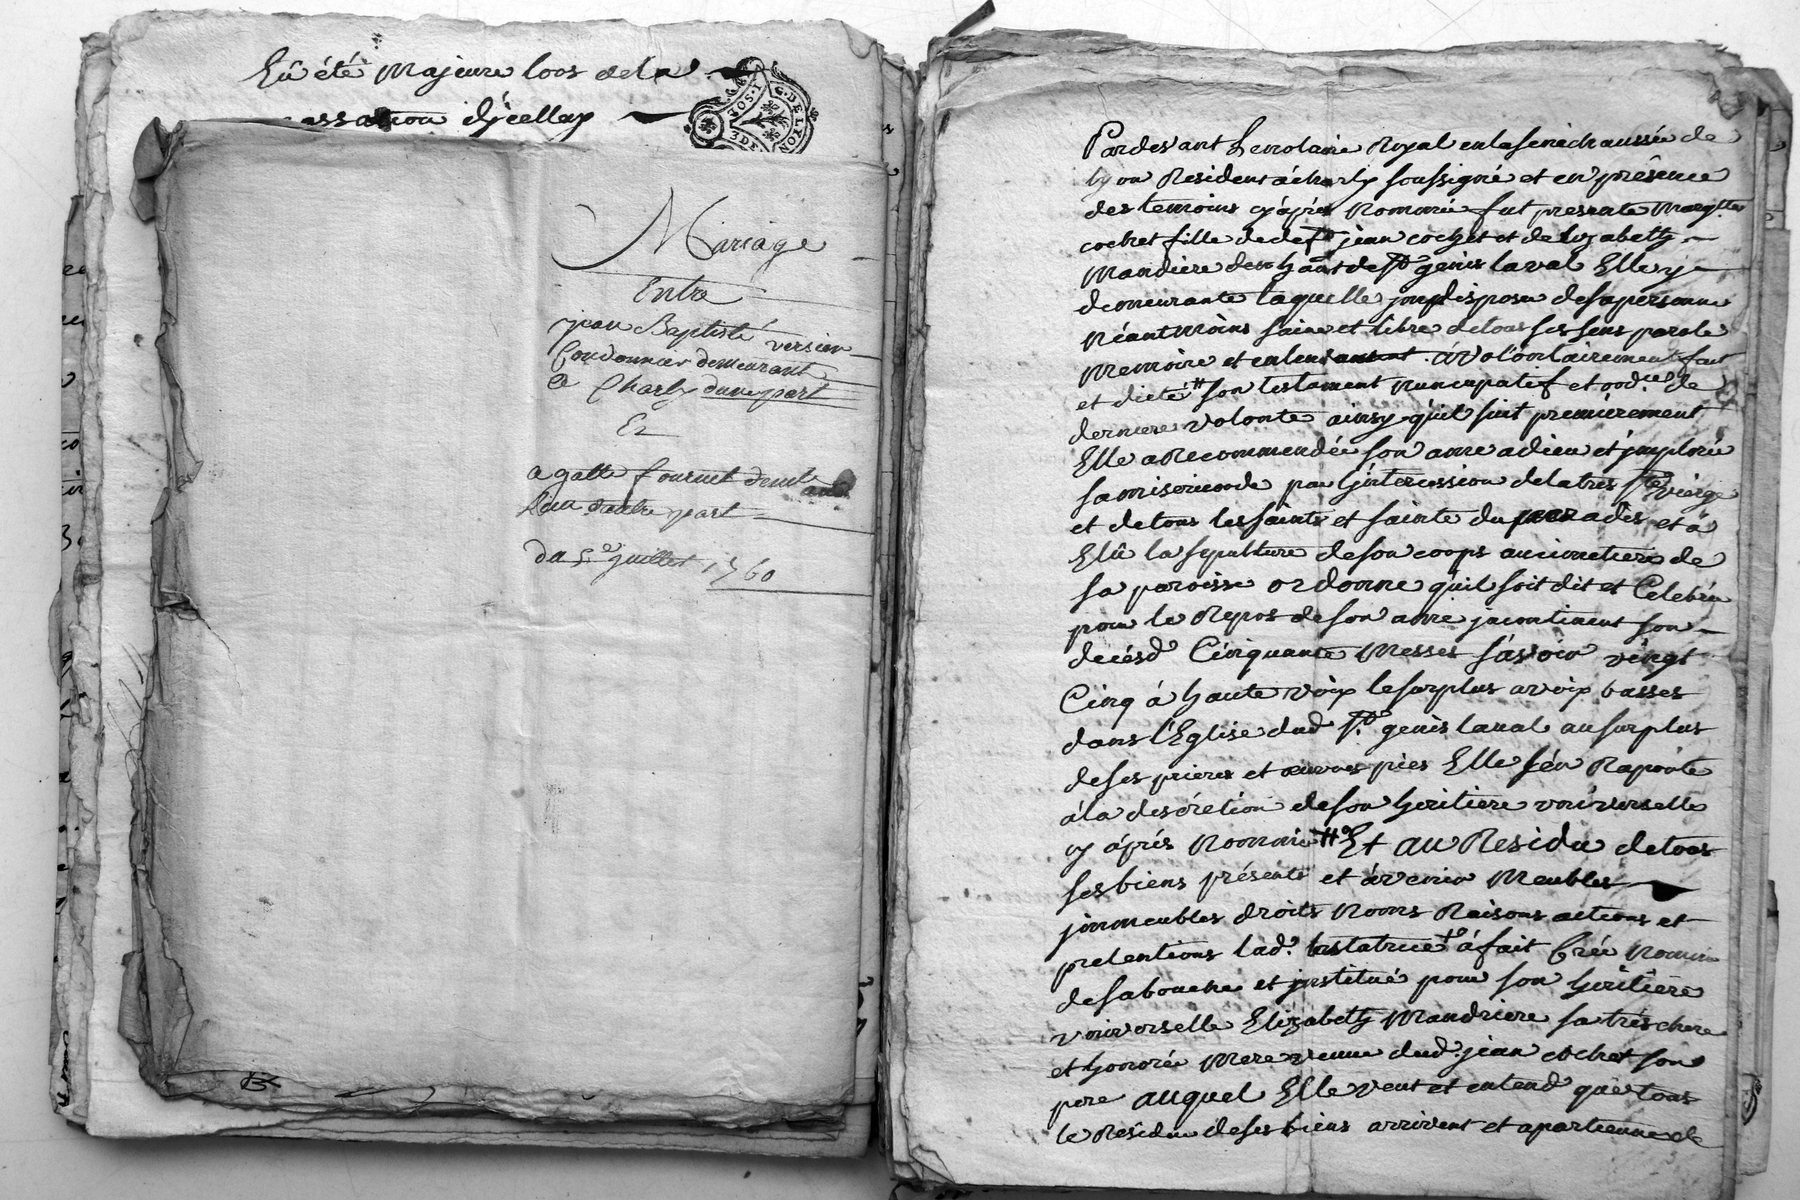 Eû été Majeure lors de la
passation d'jcelles
G. DE LYON
Mariage
Entre
jean Baptiste versier
Cordonnier demeurant
a Charly d'une part
Et
agatte fournet
d'autre part
du 5e juillet 1760
Pardevant Le notaire Royal en la senechaussée de
lyon Resident à charly soussigné et en présence
des temoins cy aprés Nommés fut presente Margtte
cochet fille de deft jean cochet et de Elizabeth
Mandiere de st genis laval Elle y
demeurante laquelle disposée de sa personne
Néantmoins saine et libre de tous ses sens parole
Memoire et entendement a volontairement fait
et dicté # son testament nuncupatif et ord.ce de
derniere volonté ainsy qu'il suit premièrement
Elle a Recommandée son ame a dieu et jmplorée
sa misericorde par l'jntercession de la tres Ste vierge
et de tous les saints et sainte du paradis et à
Elû la sepulture de son corps au cimetiere de
sa paroisse ordonne qu'il soit dit et Celebrée
pour le Repos de son ame jncontinent son
decésd Cinquante Messes sçavoir vingt
Cinq à haute voix le surplus a voix basses
dans l'Eglise dud St genis laval au surplus
de ses prieres et œuvres pies Elle s'én Raporte
á la descrétion de son heritiere vniverselle
cy áprés Nommée # Et au Residu de tous
ses biens présents et ávenir Meubles
jmmeubles droits Noms Raisons actions et
pretentions lad. testatrice á fait Créé Nommé
de sa bouche et jnstitué pour son heritiere
vniverselle Elizabeth Mandriere sa trés chere
et honorée Mere veuve dud. jean cochet son
pere auquel Elle veut et entend que tous
le Residu de ses biens arrivent et apartienne de